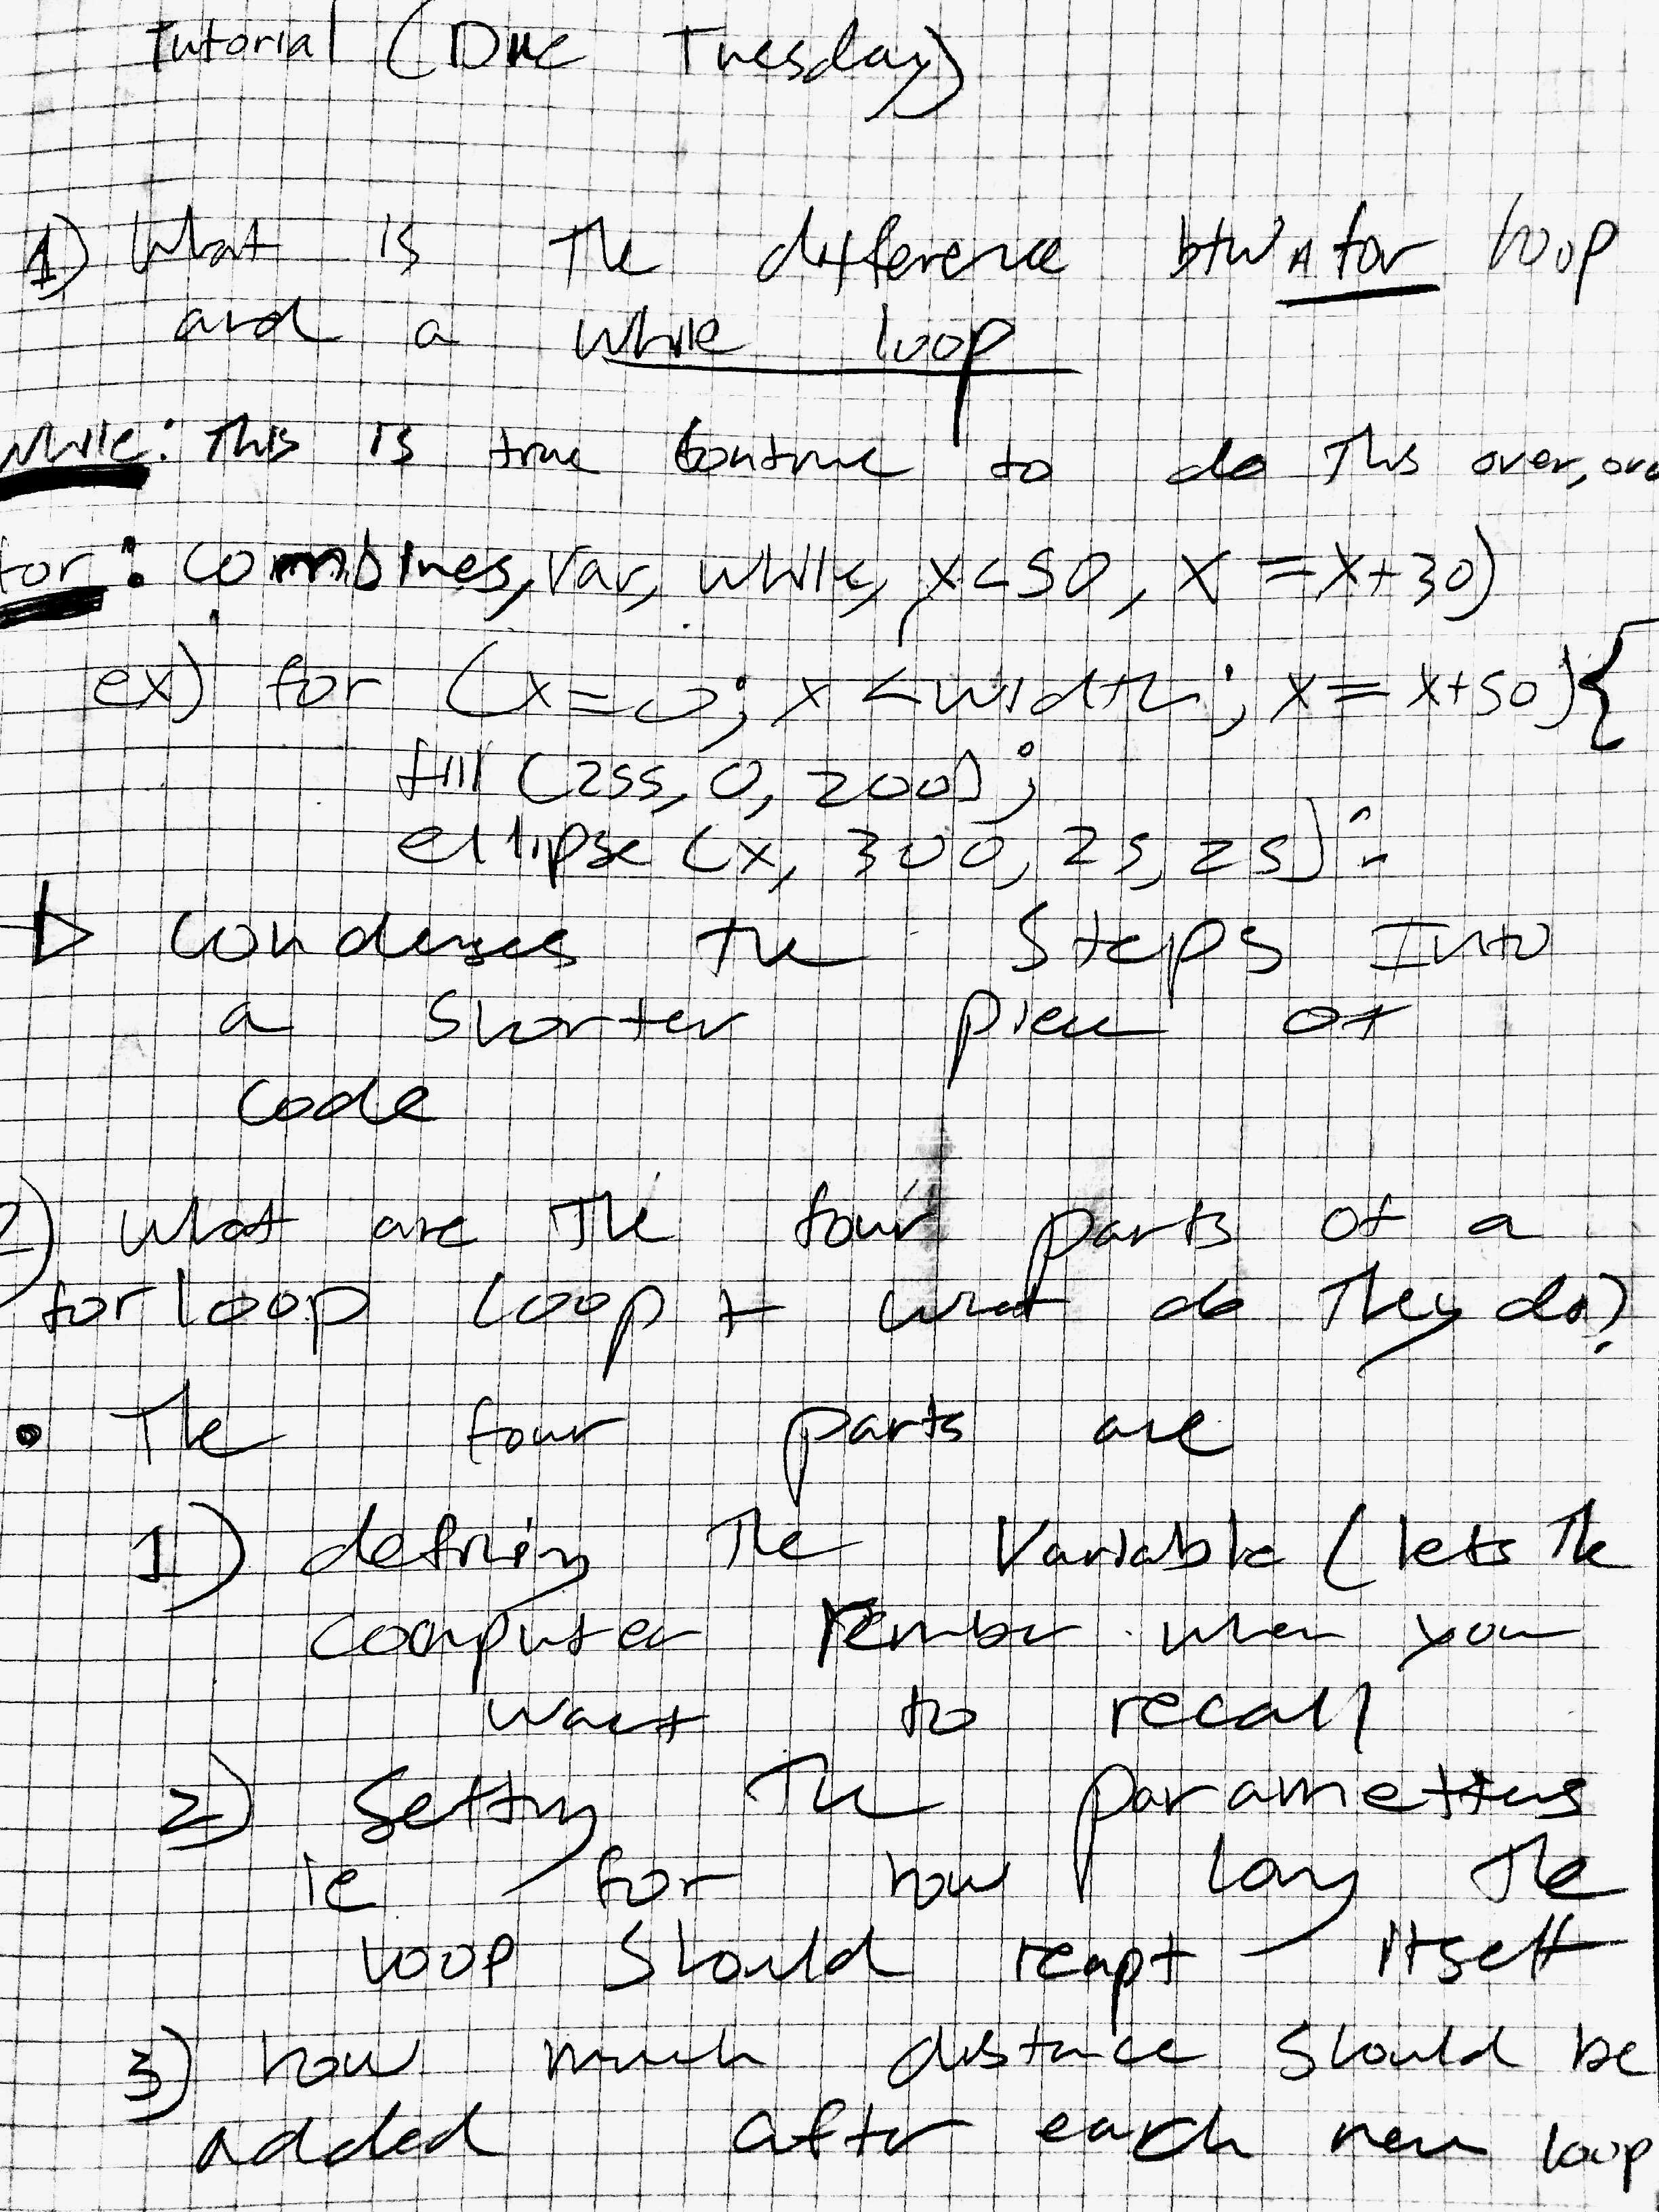 Tutorial (Due Tuesday)
1) What is The difference btw A for loop
and a while loop
while: This is true continue to do This over, and
for: combines, var, while, x<50, x=x+30)
ex) for (x=0; x<width; x=x+50){
fill (255, 0, 200);
ellipse (x, 300, 25, 25);
Condenses The Steps Into
a shorter piece of
code
2) What are The four parts of a
for loop loop + what do They do?
• The four parts are
1) defining The Variable (lets The
computer rember when you
want to recall
2) Setting The parameters
ie for how long The
loop Should reapt itself
3) how much distance should be
added after each new loop